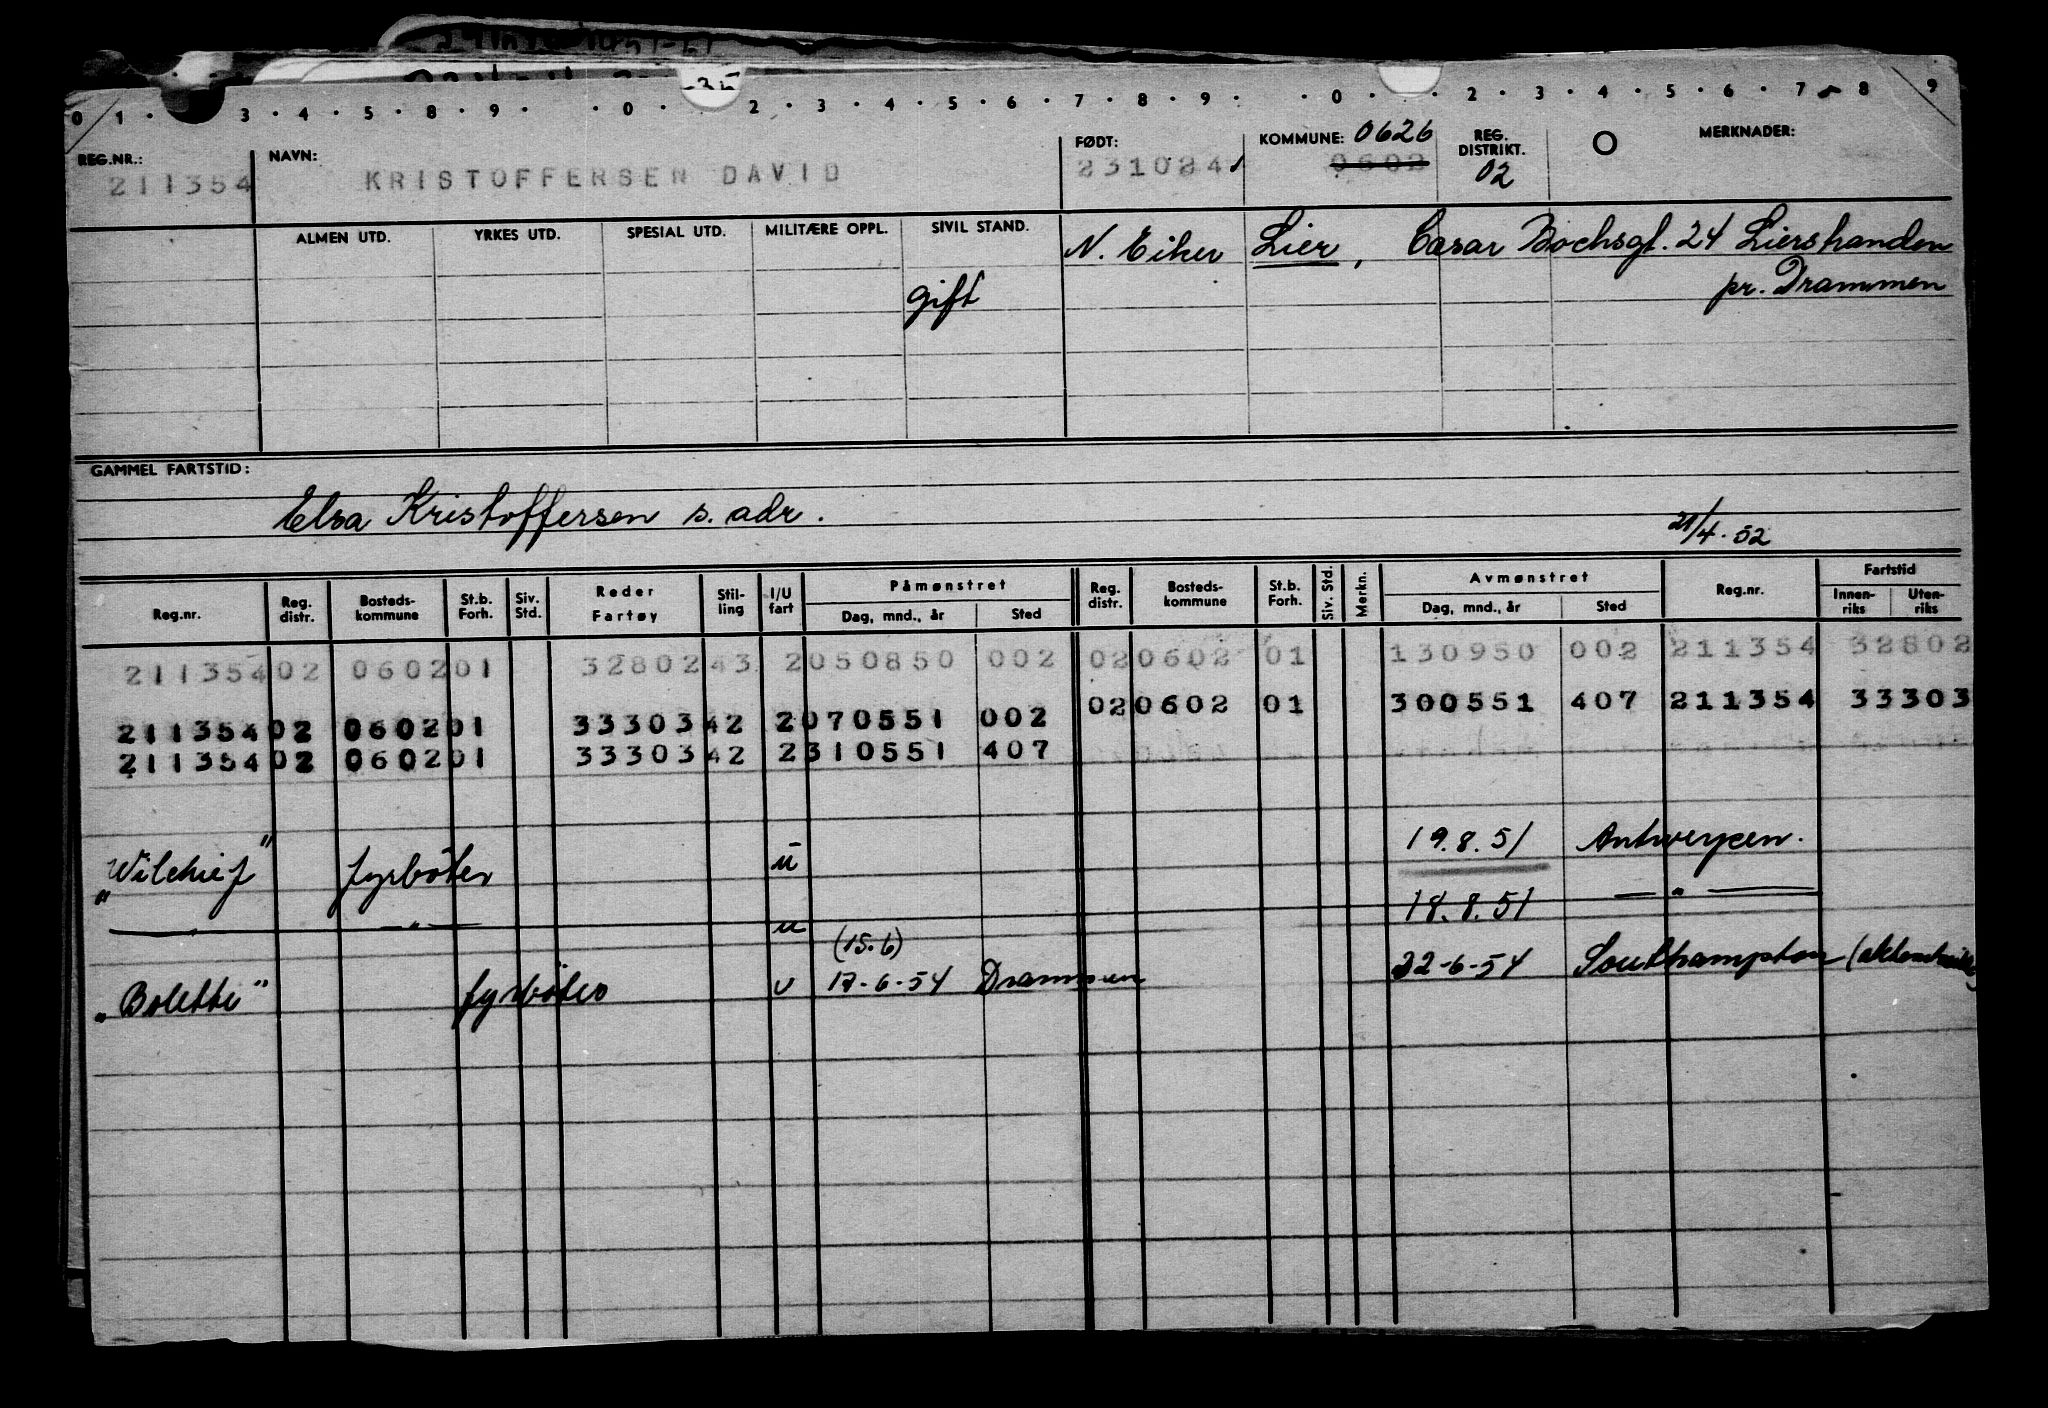 0 1 · 3 · 4 · 5 · 8 · 9 · · 0 · 35 2 · 3 · 4 · 5 · 6 · 7 · 8 · 9 · · 0 · · 2 · 3 · 4 · 5 · 6 · 7 · 8 9
REG.NR.: NAVN: FØDT: KOMMUNE: 0626 REG. DISTRIKT. O MERKNADER:
211354 KRISTOFFERSEN DAVID 2310241 0602 02
ALMEN UTD. YRKES UTD. SPESIAL UTD. MILITÆRE OPPL. SIVIL STAND. N. Eiker Lier, Cæsar Bochsgt. 24 Lierstranden
gift pr. Drammen
GAMMEL FARTSTID:
Elsa Kristoffersen s. adr.
21/4. 52
Reg.nr. Reg. distr. Bosteds- kommune St.b. Forh. Siv. Std. Reder Fartøy Stil- ling I/U fart Påmønstret Dag, mnd., år Sted Reg. distr. Bosteds- kommune St.b. Forh. Siv. Std. Merkn. Avmønstret Dag, mnd., år Sted Reg.nr. Fartstid Innen- riks Uten- riks
211354 02 0602 01 32802 43 2 050850 002 02 0602 01 130950 002 211354 32802
211354 02 0602 01 33303 42 2 070551 002 02 0602 01 300551 407 211354 33303
211354 02 0602 01 33303 42 2 310551 407
"Wilchief" fyrböter u 19.8.51 Antwerpen.
— " — — " — u 18.8.51 — " —
(15.6)
"Bolette" fyrböter u 17-6-54 Drammen 22-6-54 Southampton